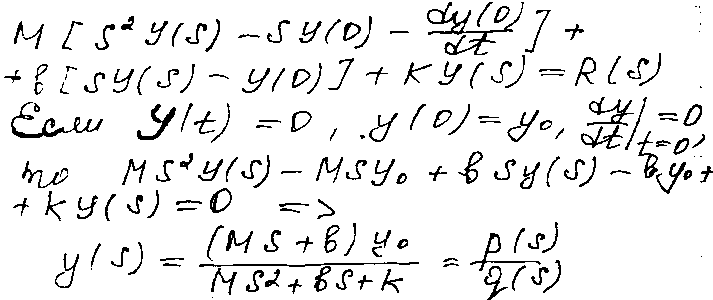 M [ S² Y(S) - S Y(0) - dy(0)/dt ] +
+ в [ S Y(S) - Y(0) ] + K Y(S) = R(S)
Если Y(t) = 0, y(0) = y₀, dy/dt|t=0 = 0,
то MS² Y(S) - MS y₀ + в S y(S) - в y₀ +
+ K Y(S) = 0 =>
y(S) = (MS + в) y₀ / MS2 + вS + K = p(S) / q(S)